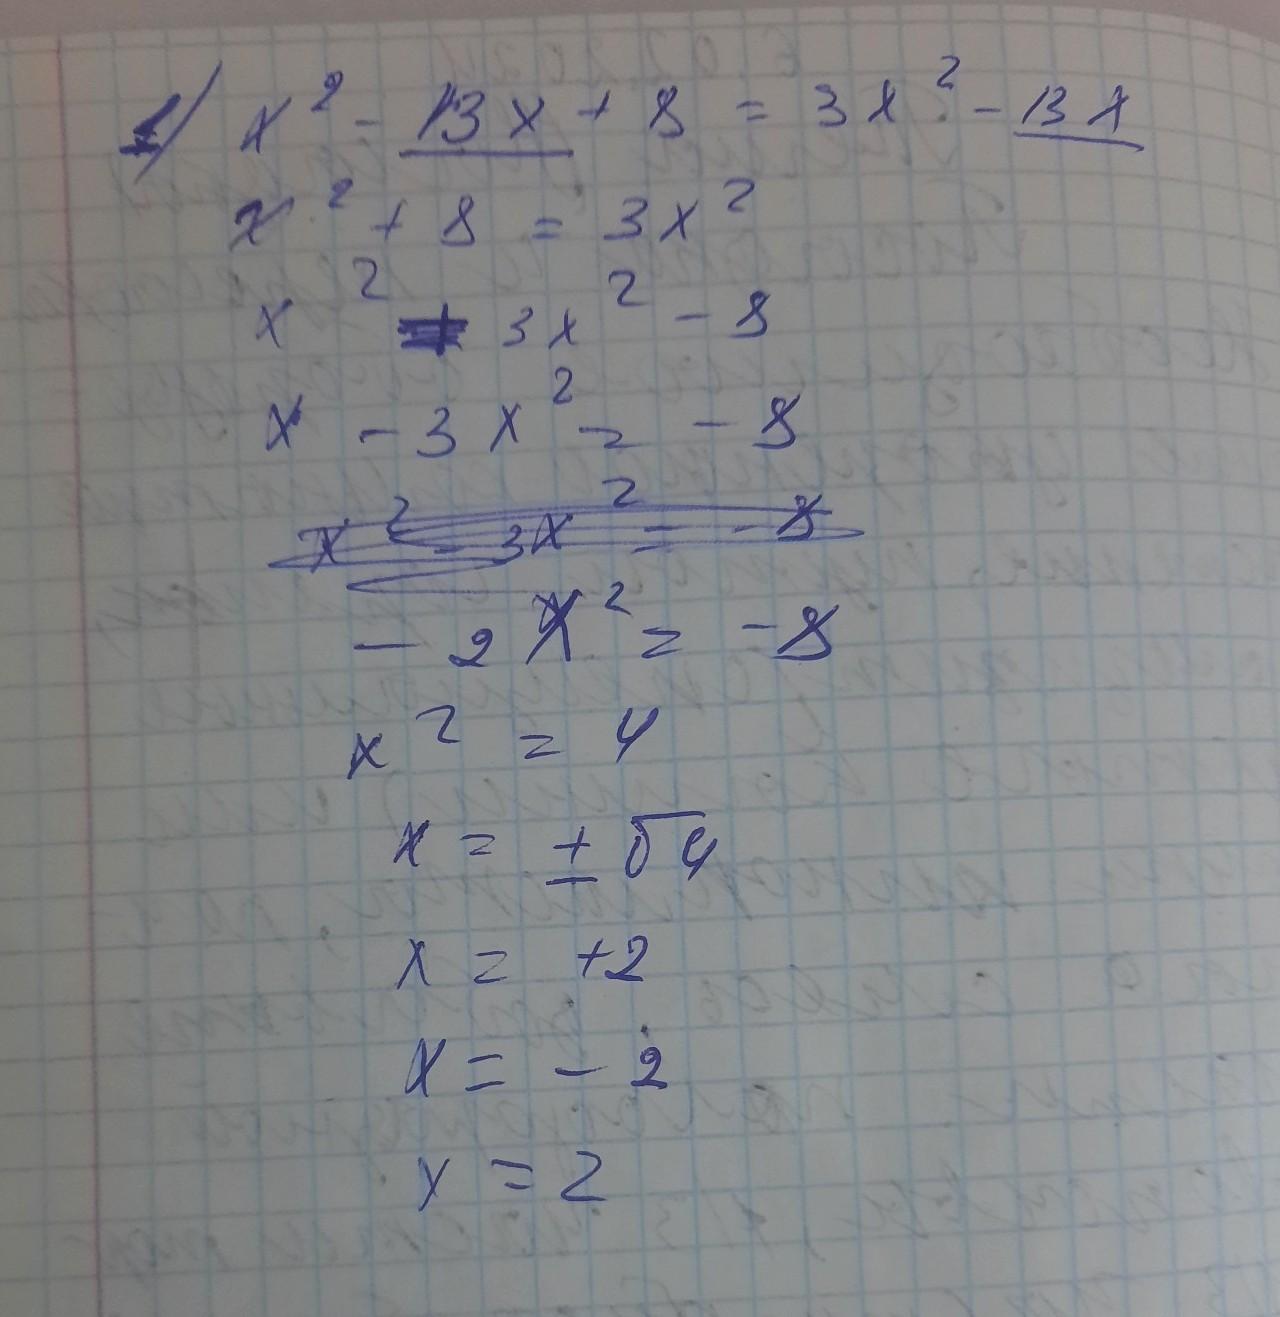 1) x² - 13x + 8 = 3x² - 13x
x² + 8 = 3x²
x² 3x² - 8
x - 3x² = - 8
x² - 3x² = - 8
- 2x² = -8
x² = 4
x = ± √4
x = +2
x = - 2
x = 2